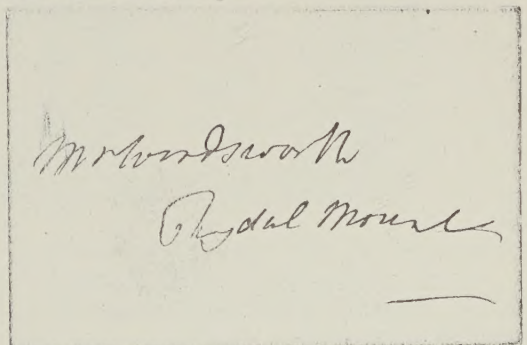 Mr Wordsworth
Rydal Mount